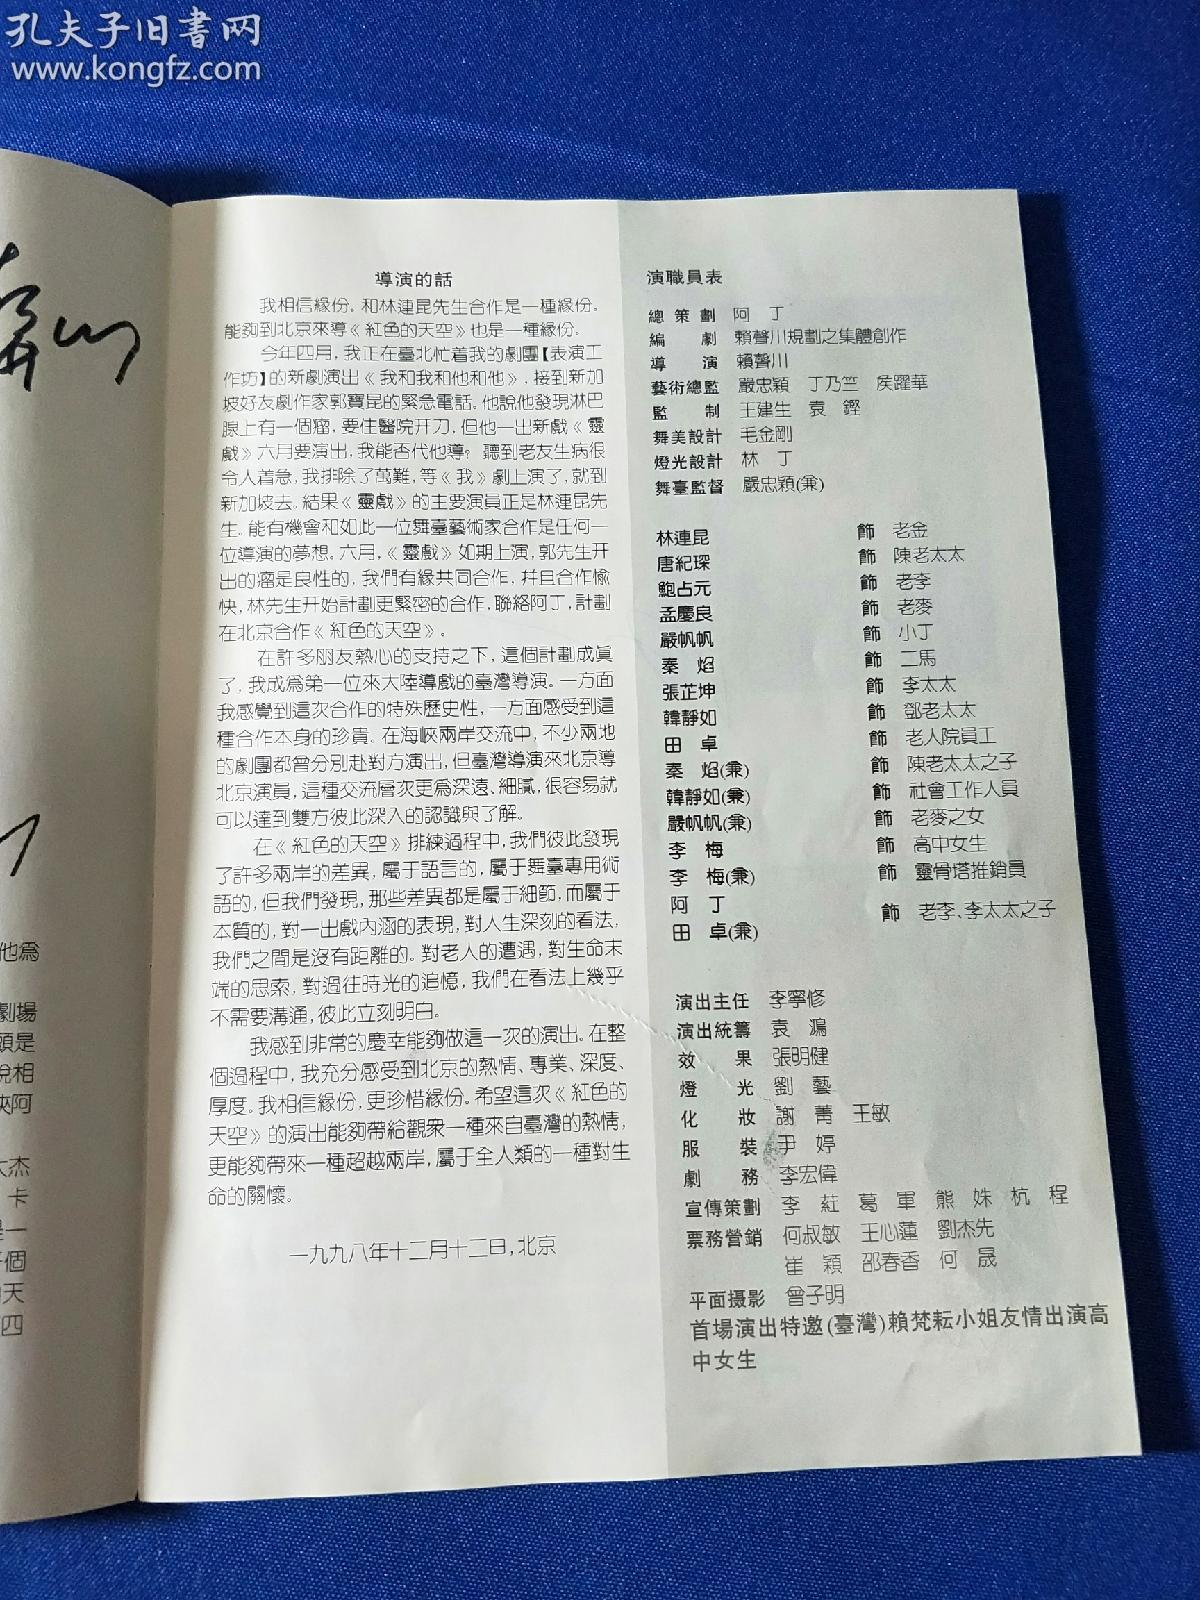 孔夫子旧書网
www.kongfz.com
他爲
劇場
頭是
説相
大杰
卡
是一
個
天
四
導演的話
我相信緣份。和林連昆先生合作是一種緣份。
能夠到北京來導《紅色的天空》也是一種緣份。
今年四月，我正在臺北忙着我的劇團【表演工
作坊】的新劇演出《我和我和他和他》，接到新加
坡好友劇作家郭寶昆的緊急電話。他說他發現淋巴
腺上有一個瘤，要住醫院開刀，但他一出新戲《靈
戲》六月要演出，我能否代他導？聽到老友生病很
令人着急，我排除了萬難，等《我》劇上演了，就到
新加坡去。結果《靈戲》的主要演員正是林連昆先
生。能有機會和如此一位舞臺藝術家合作是任何一
位導演的夢想。六月，《靈戲》如期上演，郭先生開
出的瘤是良性的，我們有緣共同合作，并且合作愉
快，林先生開始計劃更緊密的合作，聯絡阿丁，計劃
在北京合作《紅色的天空》。
在許多朋友熱心的支持之下，這個計劃成眞
了，我成爲第一位來大陸導戲的臺灣導演。一方面
我感覺到這次合作的特殊歷史性，一方面感受到這
種合作本身的珍貴。在海峽兩岸交流中，不少兩地
的劇團都曾分别赴對方演出，但臺灣導演來北京導
北京演員，這種交流層次更爲深遠、細膩，很容易就
可以達到雙方彼此深入的認識與了解。
在《紅色的天空》排練過程中，我們彼此發現
了許多兩岸的差異，屬于語言的，屬于舞臺專用術
語的，但我們發現，那些差異都是屬于細節，而屬于
本質的，對一出戲内涵的表現，對人生深刻的看法，
我們之間是沒有距離的。對老人的遭遇，對生命末
端的思索，對過往時光的追憶，我們在看法上幾乎
不需要溝通，彼此立刻明白。
我感到非常的慶幸能夠做這一次的演出。在整
個過程中，我充分感受到北京的熱情、專業、深度、
厚度。我相信緣份，更珍惜緣份。希望這次《紅色的
天空》的演出能夠帶給觀衆一種來自臺灣的熱情，
更能夠帶來一種超越兩岸，屬于全人類的一種對生
命的關懷。
一九九八年十二月十二日，北京
演職員表
總策劃 阿 丁
編 劇 賴聲川規劃之集體創作
導 演 賴聲川
藝術總監 嚴忠穎 丁乃竺 侯躍華
監 制 王建生 袁 鏗
舞美設計 毛金剛
燈光設計 林 丁
舞臺監督 嚴忠穎(兼)
林連昆 飾 老金
唐紀琛 飾 陳老太太
鮑占元 飾 老李
孟慶良 飾 老麥
嚴帆帆 飾 小丁
秦 焰 飾 二馬
張芷坤 飾 李太太
韓靜如 飾 鄧老太太
田 卓 飾 老人院員工
秦 焰(兼) 飾 陳老太太之子
韓靜如(兼) 飾 社會工作人員
嚴帆帆(兼) 飾 老麥之女
李 梅 飾 高中女生
李 梅(兼) 飾 靈骨塔推銷員
阿 丁
田 卓(兼) 飾 老李、李太太之子
演出主任 李寧修
演出統籌 袁 鴻
效 果 張明健
燈 光 劉 藝
化 妝 謝 菁 王敏
服 裝 尹 婷
劇 務 李宏偉
宣傳策劃 李 紅 葛 軍 熊 姝 杭 程
票務營銷 何叔敏 王心蓮 劉杰先
崔 穎 邵春香 何 晟
平面攝影 曾子明
首場演出特邀(臺灣)賴梵耘小姐友情出演高
中女生